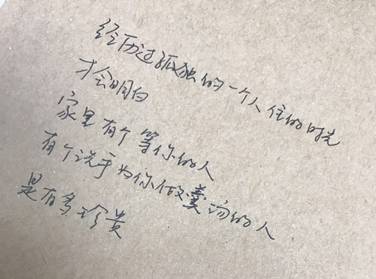 经历过孤独的一个人住的时光
才会明白
家里有个等你的人
有个洗手为你做羹汤的人
是有多珍贵